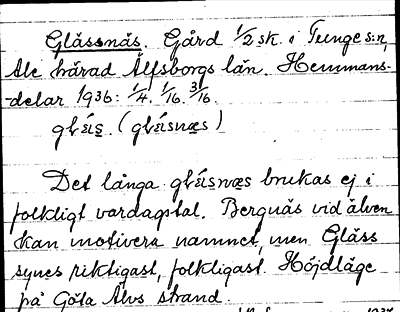 Glässnäs. Gård 1/2 sk. i Tunge s:n,
Ale härad Älfsborgs län. Hemmans-
delar 1936: 1/4. 1/16. 3/16.
gléis. (gléisnæs)
Det långa gléisnæs brukas ej i
folkligt vardagstal. Bergnäs vid älven
kan motivera namnet, men Gläss
synes riktigast, folkligast. Höjdläge
på Göta Älvs strand.